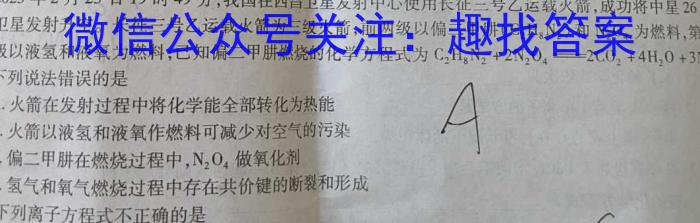 023年2月23日19时49分,我国在西昌卫星发射中心使用长征三号乙运载火箭,成功将中星26
卫星发射 长征三号乙运载火箭为三级火箭,前两级以偏 和 为燃料,第
微信公众号关注：趣找答案
级以液氢和液氧为燃料,已知偏二甲肼燃烧的化学方程式为 C₂H₈N₂+2N₂O₄ 2CO₂+4H₂O+3N
下列说法错误的是
.火箭在发射过程中将化学能全部转化为热能
.火箭以液氢和液氧作燃料可减少对空气的污染
.偏二甲肼在燃烧过程中,N₂O₄ 做氧化剂
.氢气和氧气燃烧过程中存在共价键的断裂和形成
A
下列离子方程式不正确的是